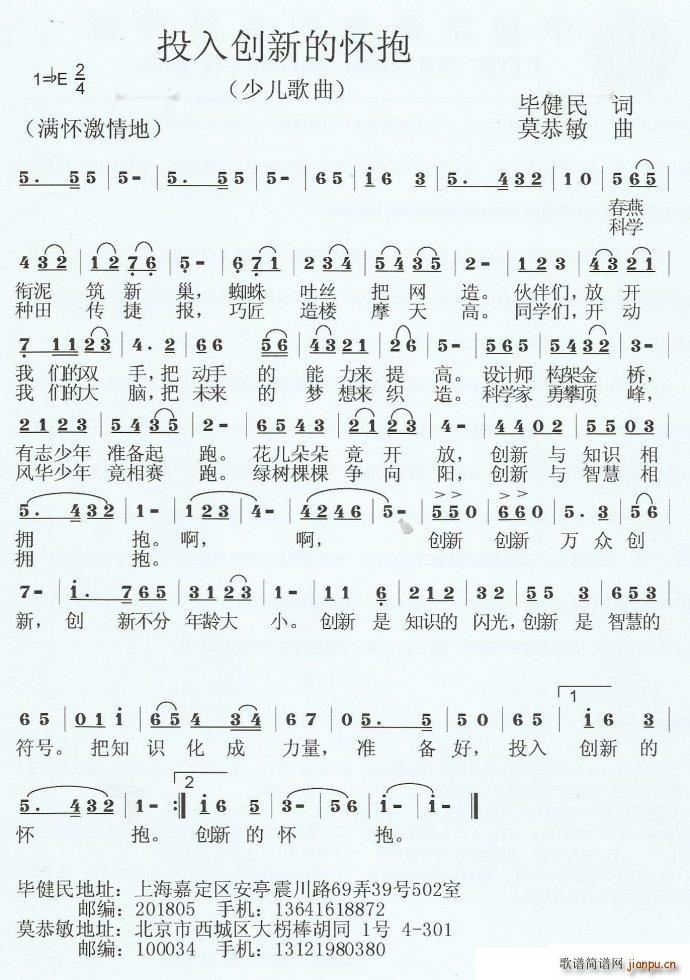 投入创新的怀抱
1=♭E 2/4
（少儿歌曲）
毕健民 词
（满怀激情地）
莫恭敏 曲
5. 5 5 5 | 5 - | 5. 5 5 | 5 - | 6 5 | i 6 3 | 5. 4 3 2 | 1 0 | 5 6 5 |
春燕
科学
4 3 2 | 1 2 7 6 | 5 - | 6 7 1 | 2 3 4 | 5 4 3 5 | 2 - | 1 2 3 | 4 3 2 1 |
衔泥 筑 新 巢，蜘蛛 吐丝 把 网 造。伙伴们，放 开
种田 传 捷 报，巧匠 造楼 摩 天 高。同学们，开 动
7 1 1 2 3 | 4. 2 | 6 6 5 6 | 4 3 2 1 | 2 6 | 5 - | 5 6 5 | 5 4 3 2 | 3 - |
我 们的双 手，把 动手 的 能 力来 提 高。设计师 构架金 桥，
我 们的大 脑，把 未来 的 梦 想来 织 造。科学家 勇攀顶 峰，
2 1 2 3 | 5 4 3 5 | 2 - | 6 5 4 3 | 2 1 2 3 | 5 - | 4 4 0 2 | 5 5 0 3 |
有志少年 准备起 跑。花儿朵朵 竟 开 放，创新 与 知识 相
风华少年 竟相赛 跑。绿树棵棵 争 向 阳，创新 与 智慧 相
5. 4 3 2 | 1 - | 1 2 3 | 4 - | 4 2 4 6 | 5 - | 5 5 0 | 6 6 0 | 5. 3 | 5 6 |
拥 抱。啊， 啊， 创新 创新 万 众 创
拥 抱。
7 - | i. 7 6 5 | 3 1 2 3 | 1 - | 1 1 6 | 2 1 2 | 3 0 2 3 | 6 5 3 |
新，创 新不分 年龄大 小。创新 是 知识的 闪光，创新 是 智慧的
6 5 | 0 1 i | 6 5 4 3 4 | 6 7 | 0 5. 5 | 5 0 | 6 5 | 1 i 6 3 |
符号。把知 识 化 成 力量，准 备 好，投入 创新 的
5. 4 3 2 | 1 - :| 2 i 6 5 | 3 - 5 6 | i - | i - ‖
怀 抱。创新 的 怀 抱。
毕健民地址：上海嘉定区安亭震川路69弄39号502室
邮编：201805 手机：13641618872
莫恭敏地址：北京市西城区大拐棒胡同 1号 4-301
邮编：100034 手机：13121980380
歌谱简谱网
jianpu.cn